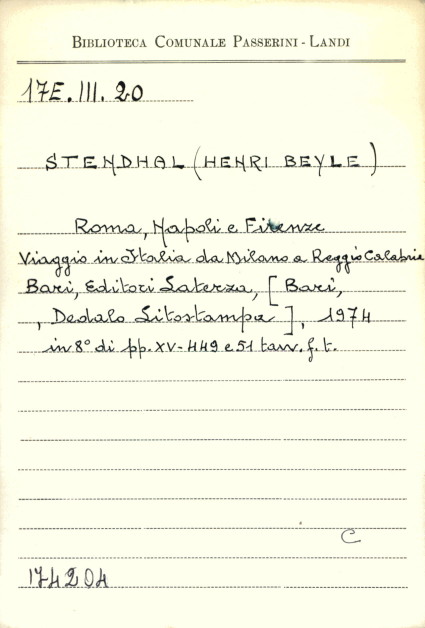 BIBLIOTECA COMUNALE PASSERINI - LANDI
17E. III. 20
STENDHAL (HENRI BEYLE)
Roma, Napoli e Firenze
Viaggio in Italia da Milano a Reggio Calabria
Bari, Editori Laterza, [Bari,
, Dedalo Litostampa], 1974
in 8° di pp. XV-449 e 51 tavv. f. t.
C
174204